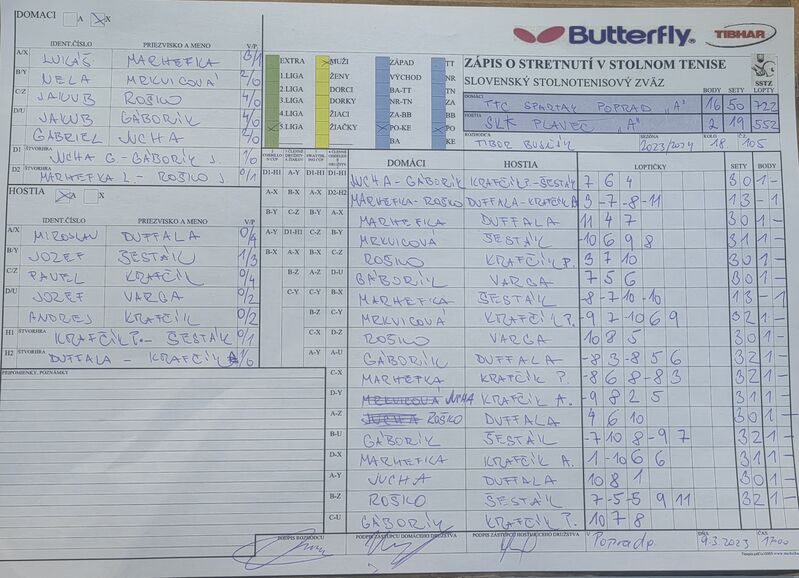 DOMÁCI A X
Butterfly TIBHAR
ZÁPIS O STRETNUTÍ V STOLNOM TENISE
SLOVENSKÝ STOLNOTENISOVÝ ZVÄZ
SSTZ
BODY SETY LOPTY
DOMÁCI TTC SPARTAK POPRAD "A" 16 50 722
HOSTIA SLK PLAVEČ "A" 2 19 552
ROZHODCA SEZÓNA KOLO Č.
TIBOR 2023/2024 18 105
IDENT.ČÍSLO PRIEZVISKO A MENO V/P
A/X LUKÁŠ MARHEFKA 3/1
B/Y NELA MRKVICOVÁ 2/0
C/Z JAKUB ROŠKO 4/0
D/U JAKUB GÁBORÍK 4/0
GABRIEL JUCHA 2/0
D1 ŠTVORHRA JUCHA G - GÁBORÍK J. 1/0
D2 ŠTVORHRA MARHEFKA L - ROŠKO J. 0/1
HOSTIA A X
IDENT.ČÍSLO PRIEZVISKO A MENO V/P
A/X MIROSLAV DUFFALA 0/4
B/Y JOZEF ŠESTÁK 1/3
C/Z PAVEL KRAFČÍK 0/4
D/U JOZEF VARGA 0/2
ANDREJ KRAFČÍK 0/2
H1 ŠTVORHRA KRAFČÍK P. - ŠESTÁK 0/1
H2 ŠTVORHRA DUFFALA - KRAFČÍK A 1/0
PRIPOMIENKY, POZNÁMKY
EXTRA
1.LIGA
2.LIGA
3.LIGA
4.LIGA
5.LIGA
MUŽI
ŽENY
DORCI
DORKY
ŽIACI
ŽIAČKY
ZÁPAD
VÝCHOD
BA-TT
NR-TN
ZA-BB
PO-KE
BA
TT
NR
TN
ZA
BB
PO
KE
DOMÁCI HOSTIA LOPTIČKY SETY BODY
D1-H1 JUCHA - GÁBORÍK KRAFČÍK P. - ŠESTÁK 7 6 4 3 0 1 -
D2-H2 MARHEFKA - ROŠKO DUFFALA - KRAFČÍK A 3 -7 -8 -11 1 3 - 1
A-X MARHEFKA DUFFALA 11 4 7 3 0 1 -
B-Y MRKVICOVÁ ŠESTÁK -10 6 9 8 3 1 1 -
C-Z ROŠKO KRAFČÍK P. 3 7 10 3 0 1 -
D-U GÁBORÍK VARGA 7 5 6 3 0 1 -
B-X MARHEFKA ŠESTÁK -8 -7 -10 -10 1 3 - 1
C-Y MRKVICOVÁ KRAFČÍK P. -9 7 -10 6 9 3 2 1 -
D-Z ROŠKO VARGA 10 8 5 3 0 1 -
A-U GÁBORÍK DUFFALA -8 3 -8 5 6 3 2 1 -
C-X MARHEFKA KRAFČÍK P. -8 6 8 -8 3 3 2 1 -
D-Y MRKVICOVÁ JUCHA KRAFČÍK A. -9 8 2 5 3 1 1 -
A-Z JUCHA ROŠKO DUFFALA 4 6 10 3 0 1 -
B-U GÁBORÍK ŠESTÁK -7 10 8 -9 7 3 2 1 -
D-X MARHEFKA KRAFČÍK A. 1 -10 6 6 3 1 1 -
A-Y JUCHA DUFFALA 10 8 1 3 0 1 -
B-Z ROŠKO ŠESTÁK 7 -5 -5 9 11 3 2 1 -
C-U GÁBORÍK KRAFČÍK P. 10 7 8
PODPIS ROZHODCU PODPIS ZÁSTUPCU DOMÁCEHO DRUŽSTVA PODPIS ZÁSTUPCU HOSŤUJÚCEHO DRUŽSTVA V DŇA ČAS
9.3.2023 17:00